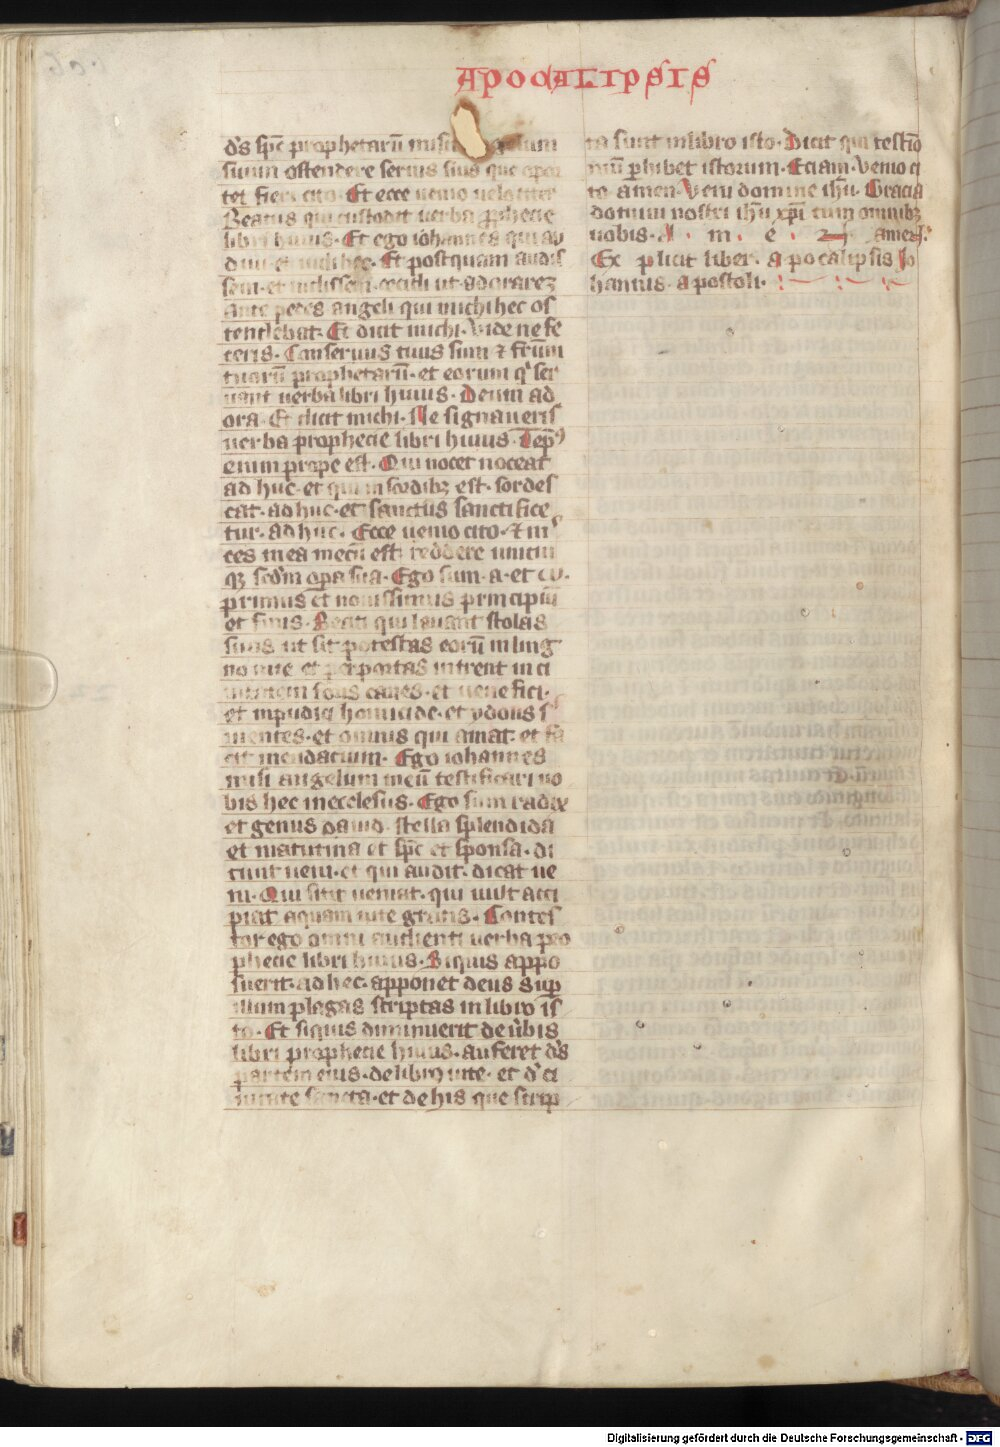 APOCALIPSIS
d's sp̄c prophetarū misit angelum
suum ostendere seruis suis que opor
tet fieri cito. Et ecce uenio uelociter
Beatus qui custodit uerba prophecie
libri huius. Et ego iohannes qui au
diui et uidi hec. Et postquam audis
sem. et uidissem. cecidi ut adorareꝫ
ante pedes angeli qui michi hec os
tendebat. Et dicit michi. Vide ne fe
ceris. Conseruus tuus sum ⁊ fr̄um
tuorū prophetarū. et eorum q' ser
uant uerba libri huius. Deum ad
ora. Et dicit michi. Ne signaueris
uerba prophecie libri huius. Tep̄⁹
enim prope est. Qui nocet noceat
ad huc. et qui in sordibꝫ est. sordes
cat. ad huc. et sanctus sanctifice
tur. ad huc. Ecce uenio cito. ⁊ m
ces mea mecū est. reddere unicui
qꝫ scd'm opa sua. Ego sum. a. et ω.
primus et nouissimus principiū
et finis. Beati qui lauant stolas
suas ut sit potestas eorū in ling
no uite. et per portas intrent in ci
uitatem foris canes. et uenefici.
et inpudici homicide. et ydolis s
uientes. et omnis qui amat. et fa
cit mendacium. Ego iohannes
misi angelum meū testificari uo
bis hec in ecclesiis. Ego sum radix
et genus dauid. stella splendida
et matutina et sp̄c et sponsa. di
cunt ueni. et qui audit. dicat ue
ni. Qui sitit ueniat. qui uult acci
piat aquam uite gratis. Contes
tor ego omni audienti uerba pro
phecie libri huius. Siquis appo
suerit. ad hec. apponet deus sup
illum plagas scriptas in libro is
to. Et siquis diminuerit de ùbis
libri prophecie huius. auferet d's
partem eius. de libro uite. et d' ci
uitate sancta. et de his que scrip
ta sunt in libro isto. Dicit qui testīo
niū perhibet istorum. Etiam. Venio ci
to amen. Veni domine ih̄u. Gracia
domini nostri ih̄u xp̄i cum omnibꝫ
uobis. A. m. e. n amen.
Ex plicit liber. a pocalipsis Jo
hannis. apostoli.
Digitalisierung gefördert durch die Deutsche Forschungsgemeinschaft - DFG